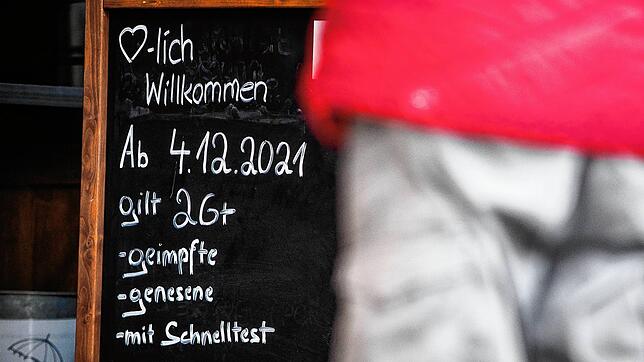 ♡-lich
Willkommen
Ab 4.12.2021
gilt 2G+
-geimpfte
-genesene
-mit Schnelltest